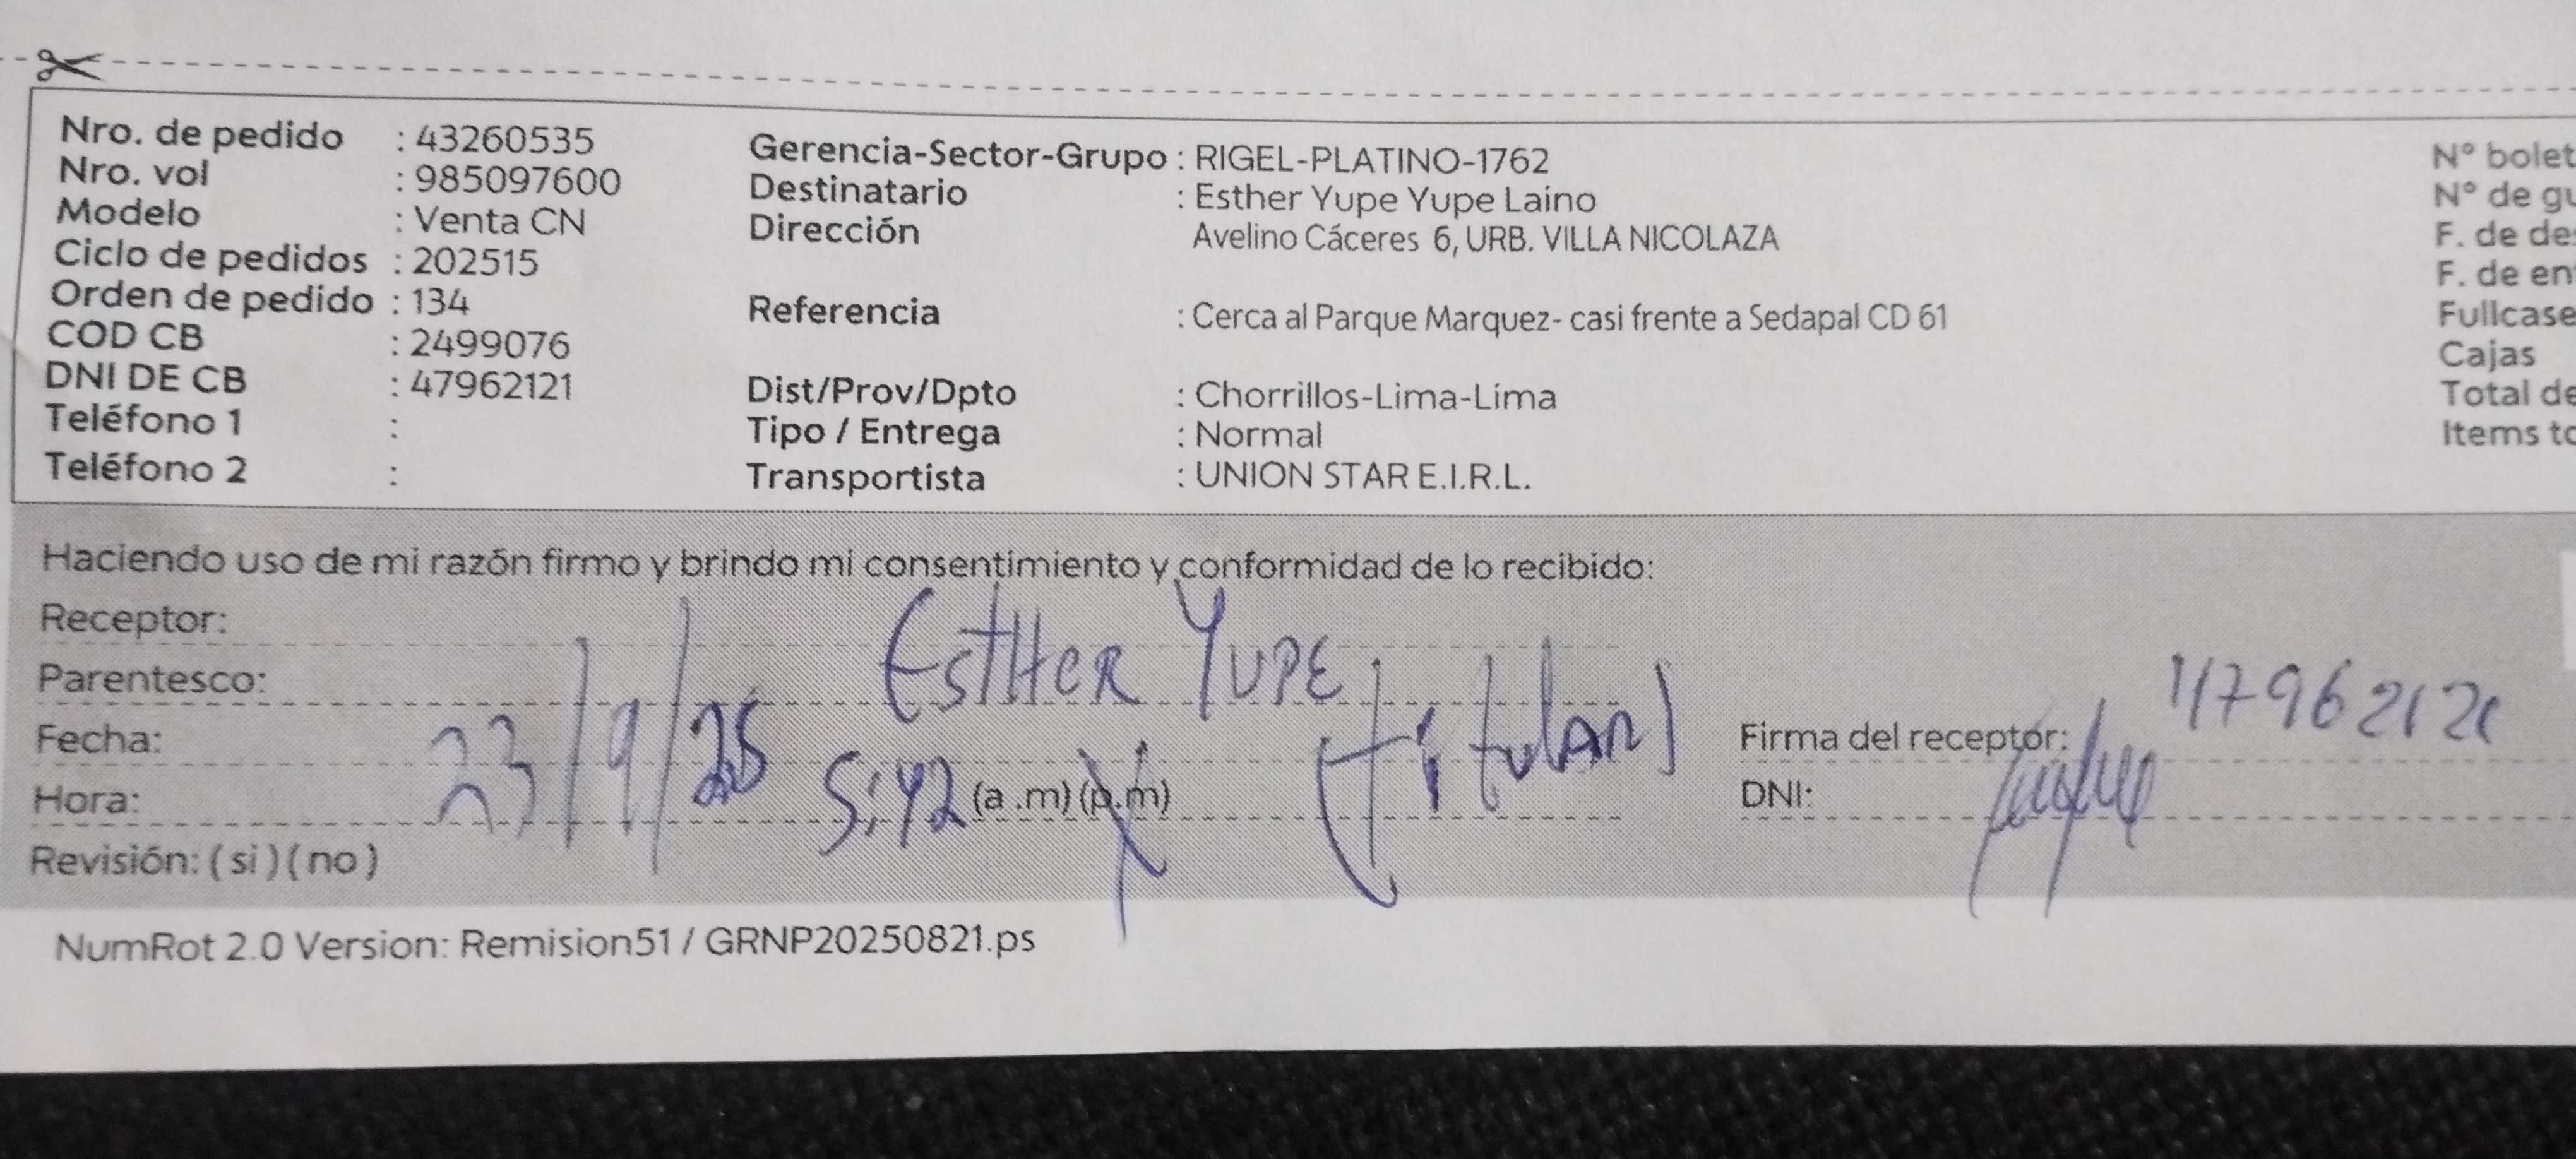 Nro. de pedido : 43260535
Nro. vol : 985097600
Modelo : Venta CN
Ciclo de pedidos : 202515
Orden de pedido : 134
COD CB : 2499076
DNI DE CB : 47962121
Teléfono 1 :
Teléfono 2 :
Gerencia-Sector-Grupo : RIGEL-PLATINO-1762
Destinatario : Esther Yupe Yupe Laino
Dirección Avelino Cáceres 6, URB. VILLA NICOLAZA
Referencia : Cerca al Parque Marquez- casi frente a Sedapal CD 61
Dist/Prov/Dpto : Chorrillos-Lima-Lima
Tipo / Entrega : Normal
Transportista : UNION STAR E.I.R.L.
N° bolet
N° de gu
F. de de
F. de en
Fullcase
Cajas
Total de
Items to
Haciendo uso de mi razón firmo y brindo mi consentimiento y conformidad de lo recibido:
Receptor: Esther Yupe
Parentesco: (titular)
Fecha: 23/9/25
Hora: 5:42 (a .m) (p.m)
Revisión: ( si ) ( no )
Firma del receptor:
DNI: 47962121
NumRot 2.0 Version: Remision51 / GRNP20250821.ps